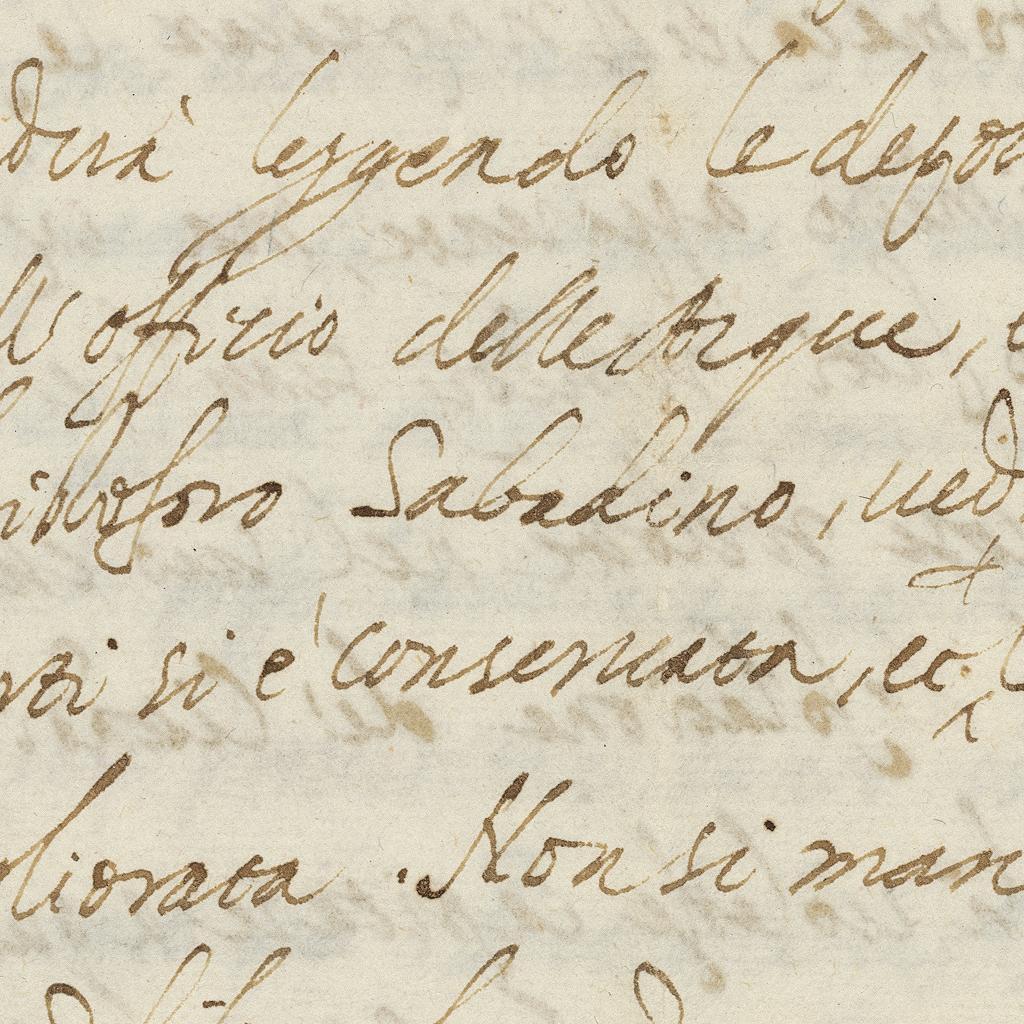 durà leggendo le depon
ll'officio delle Acque, e
Cristoforo Sabadino, ued
rti si è conseruata, et
gliorata. Non si man